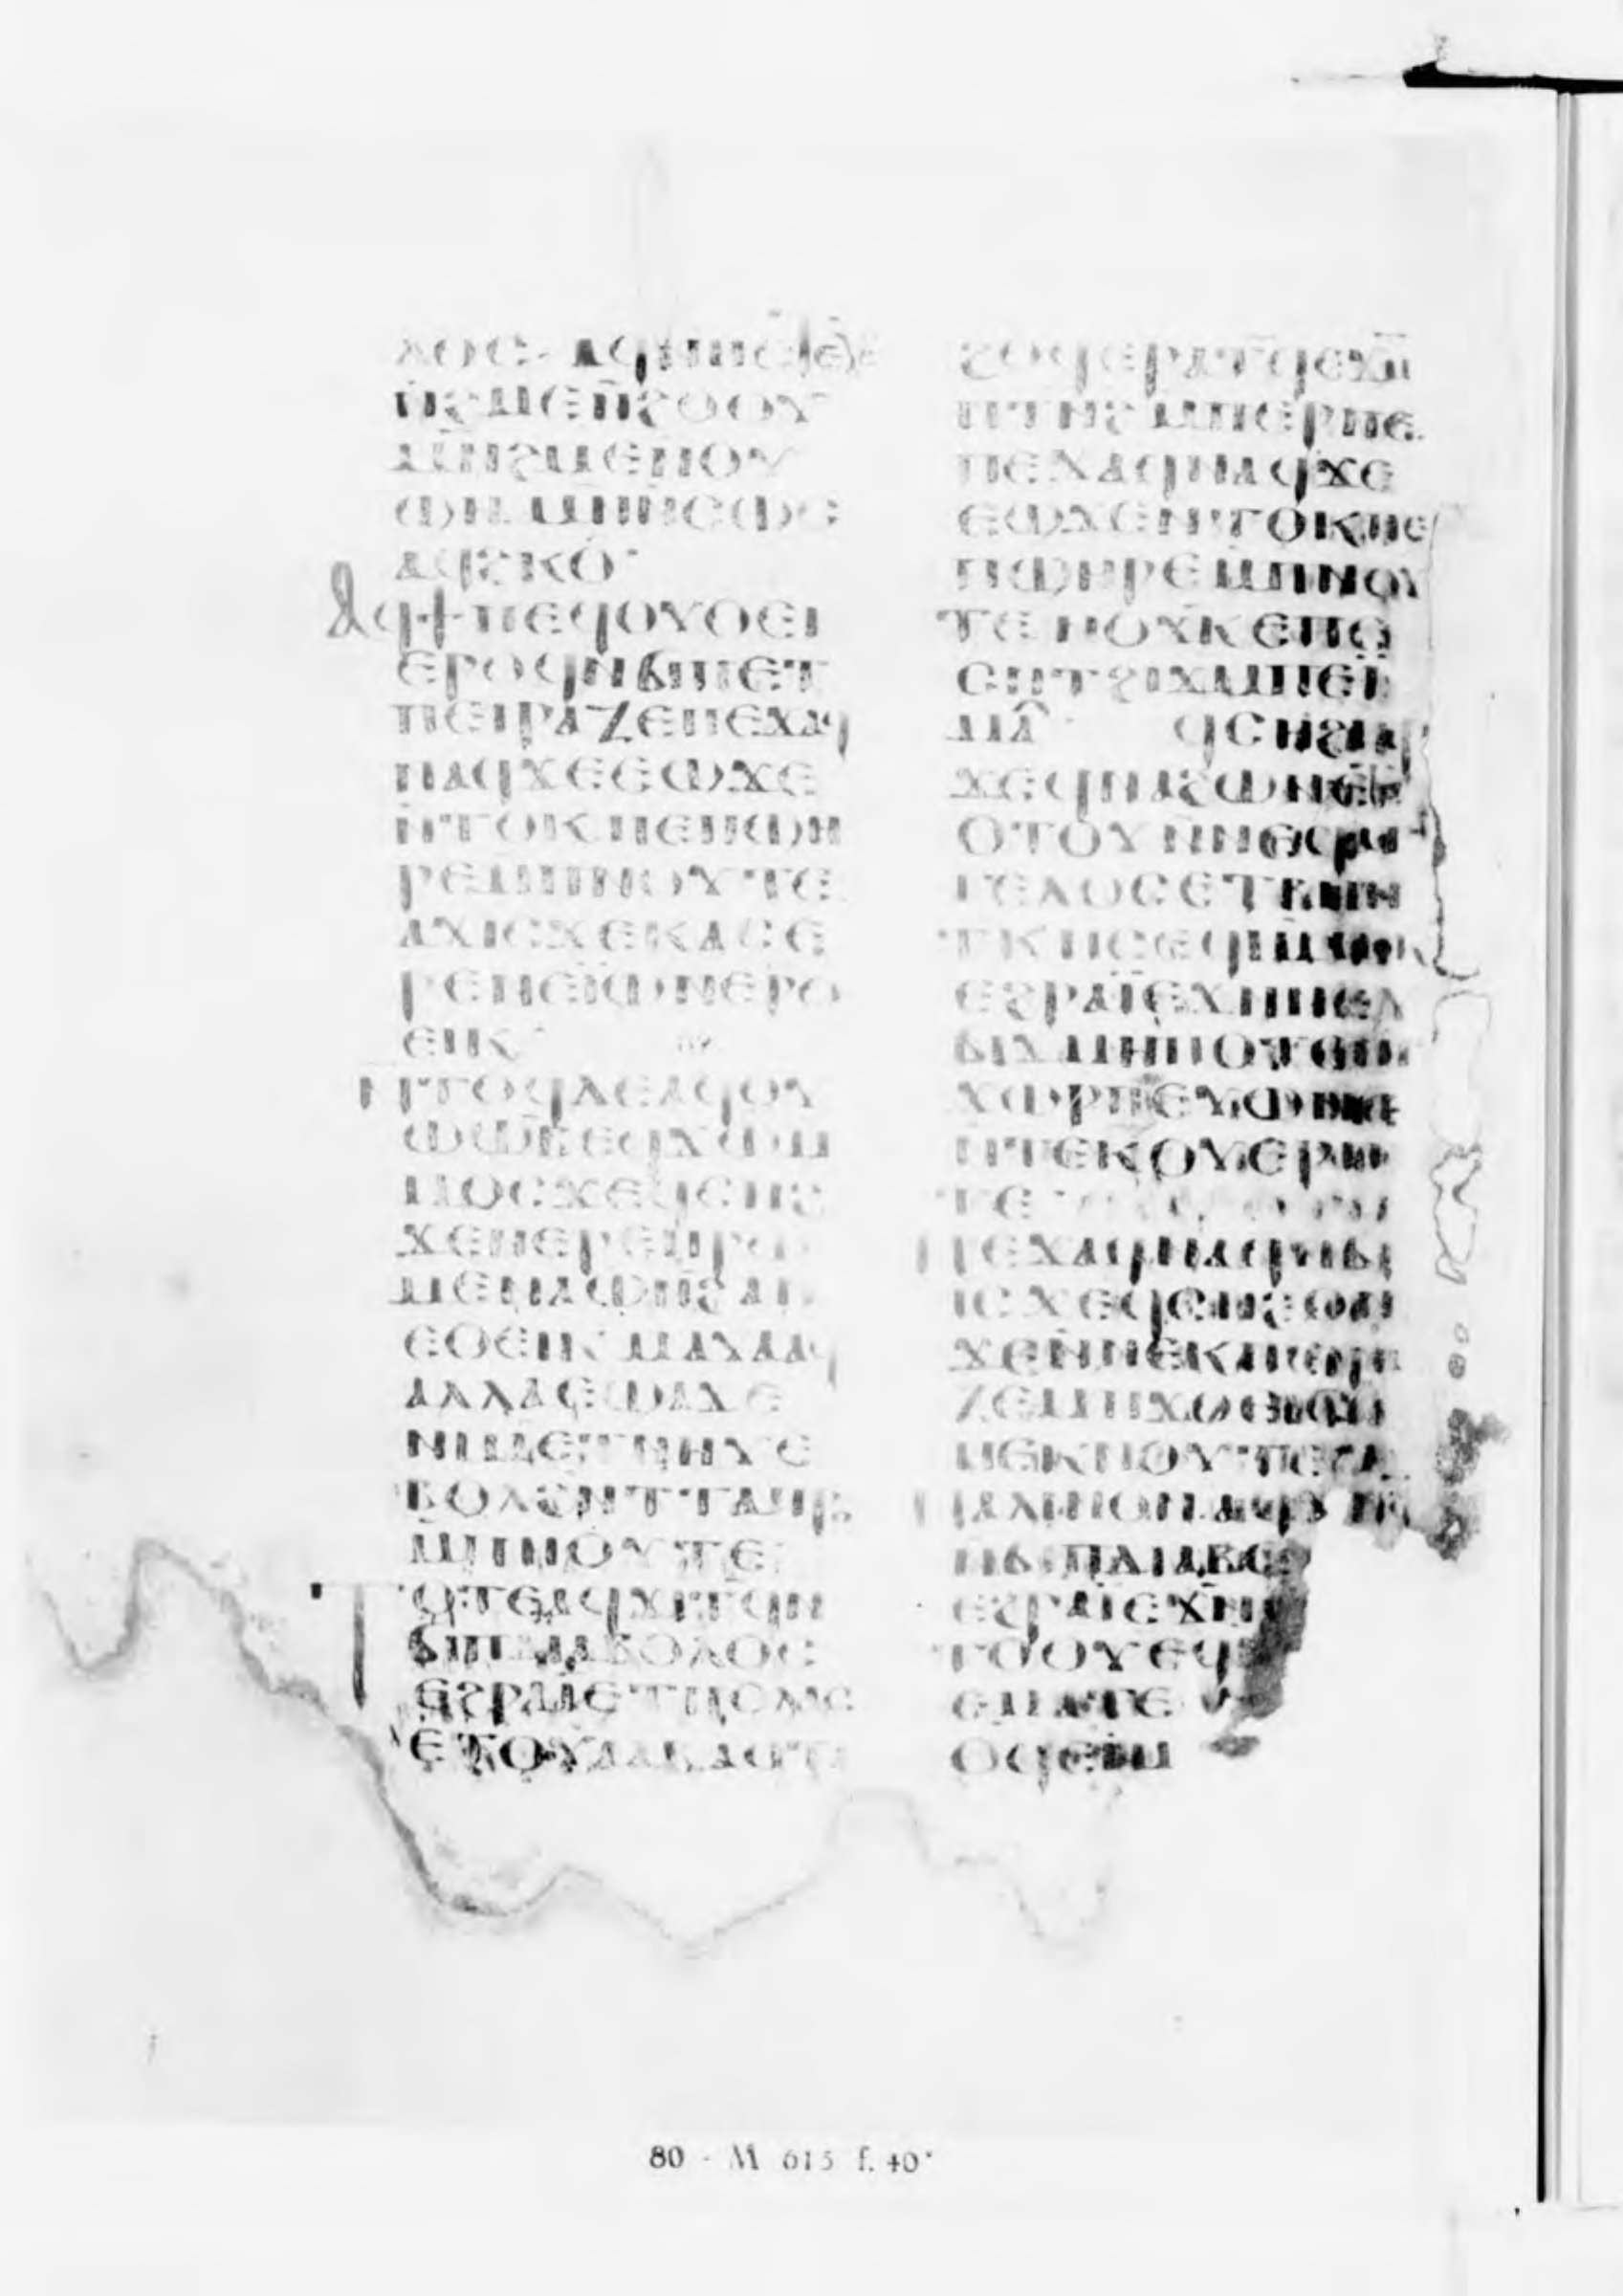 ⲗⲟⲥ· ⲁϥⲛⲏⲥ
ⲛ̄ϩⲙⲉⲛ̄ϩⲟⲟⲩ
ⲙⲛ̄ϩⲙⲉⲛⲟⲩ
ϣⲏ· ⲙⲛ̄ⲛ̄ⲥⲱⲥ
ⲁϥϩⲕⲟ·
ⲁϥϯⲡⲉϥⲟⲩⲟⲉⲓ
ⲉⲣⲟϥⲛ̄ϭⲓⲡⲉⲧ
ⲡⲉⲓⲣⲁⲍⲉⲡⲉϫⲁϥ
ⲛⲁϥϫⲉⲉϣϫⲉ
ⲛ̄ⲧⲟⲕⲡⲉⲡϣⲏ
ⲣⲉⲙⲡⲛⲟⲩⲧⲉ
ⲁϫⲓⲥϫⲉⲕⲁⲥⲉ
ⲣⲉⲛⲉⲓ̈ⲱⲛⲉⲣⲟ
ⲉⲓⲕ·
ⲛⲧⲟϥⲇⲉⲁϥⲟⲩ
ⲱϣⲃ̄ⲉϥϫⲱⲙ
ⲙⲟⲥϫⲉϥⲥⲏϩ
ϫⲉⲛⲉⲣⲉⲡⲣⲱ
ⲙⲉⲛⲁⲱⲛϩ̄ⲁⲛ
ⲉⲟⲉⲓⲕ ⲙⲁⲩⲁⲁϥ
ⲁⲗⲗⲁⲉϣⲁϫⲉ
ⲛⲓⲙⲉⲧⲛⲏⲩⲉ
ⲃⲟⲗϩⲛⲧⲧⲁⲡⲣⲟ
ⲙⲡⲛⲟⲩⲧⲉ
ⲧⲟⲧⲉⲁϥϫⲓⲧϥ̄ⲛ
ϭⲓⲡⲇⲓⲁⲃⲟⲗⲟⲥ
ⲉϩⲣⲁⲓ̈ⲉⲧⲡⲟⲗⲓⲥ
ⲉⲧⲟⲩⲁⲁⲃⲁϥⲧⲁ
ϩⲟϥⲉⲣⲁⲧϥ̄ⲉϫⲙ̄
ⲡⲧⲛϩ ⲙⲡⲉⲣⲡⲉ
ⲡⲉϫⲁϥⲛⲁϥϫⲉ
ⲉϣϫⲉⲛⲧⲟⲕⲡⲉ
ⲡϣⲏⲣⲉⲙⲡⲛⲟⲩ
ⲧⲉ ⲛⲟϫⲕ̄ⲉⲡⲉ
ⲥⲏⲧϩⲓϫⲙⲡⲉⲓ̈
ⲙⲁ· ϥⲥⲏϩⲅⲁⲣ
ϫⲉϥⲛⲁϩⲱⲛⲉ
ⲟⲧⲟⲩ ⲛ̄ⲛⲉϥⲁⲅ
ⲅⲉⲗⲟⲥⲉⲧⲃⲏⲏ
ⲧⲕ̄ⲛⲥⲉϥⲓⲙⲙⲟⲕ
ⲉϩⲣⲁⲓ̈ⲉϫⲛⲛⲉⲩ
ϭⲓϫⲙⲏⲡⲟⲧⲉⲛⲅ̄
ϫⲱⲣⲡ̄ⲉⲩⲱⲛⲉ
ⲛⲧⲉⲕⲟⲩⲉⲣⲏ
ⲧⲉ·
ⲡⲉϫⲁϥⲛⲁϥⲛϭⲓ
ⲓⲥ ϫⲉϥⲥⲏϩⲟⲛ
ϫⲉⲛ̄ⲛⲉⲕⲡⲉⲓⲣⲁ
ⲍⲉⲙⲡϫⲟⲉⲓⲥ
ⲡⲉⲕⲛⲟⲩⲧⲉ
ⲡⲁⲗⲓⲛⲟⲛⲁϥϫⲓⲧϥ
ⲛϭⲓⲡⲇⲓⲁⲃⲟ
ⲉϩⲣⲁⲓ̈ⲉϫⲛ
ⲧⲟⲟⲩⲉϥ
ⲉⲙⲁⲧⲉ
ⲟϥⲉⲛⲙ
80 - M 615 f. 40ᵛ